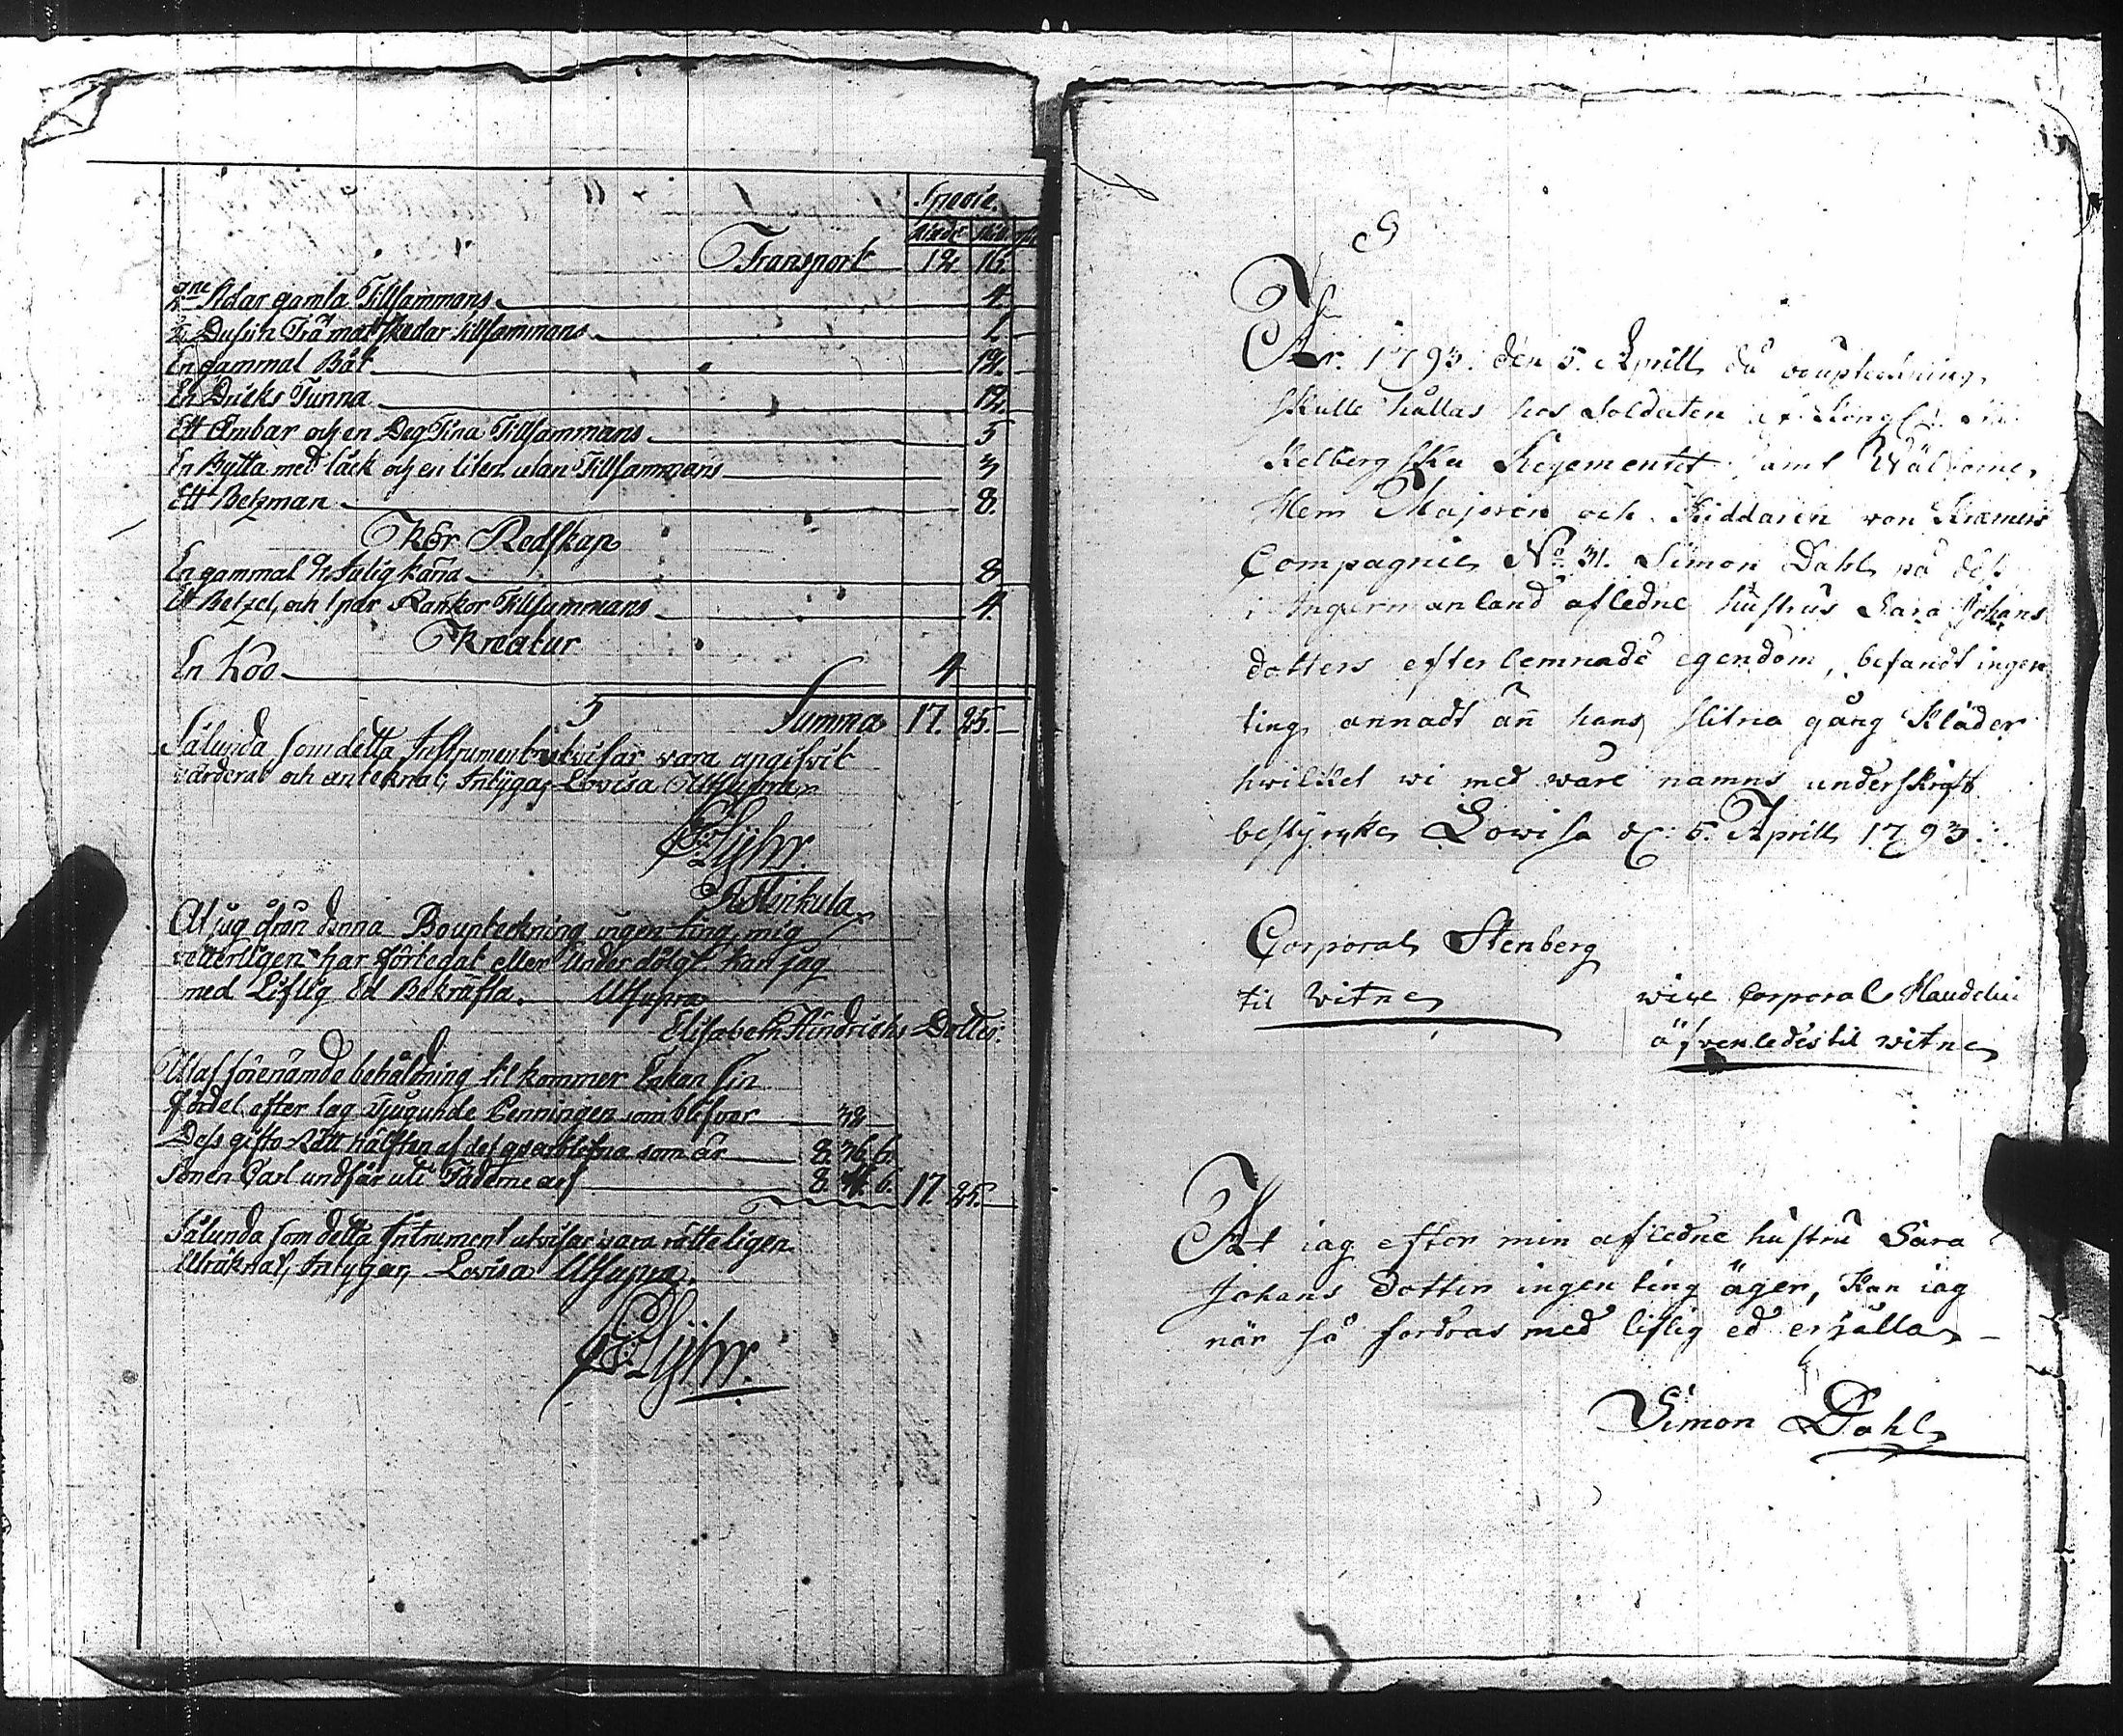 Specie.
Riksd. Skill.
Transport 12. 16.
Ådar gamla Tillsammans 4
½ Dussin Trä matskedar Tillsammans 1
En gammal Båt 12.
En Dricks Tunna 12.
Ett Ämbar och en Deg Tina Tillsammans 5
En Bytta med låck och en liten utan Tillsammans 3
Ett Betzman 8.
Kör Redskap
En gammal kärra 8
Ett Betzel, och 1 par Rankor Tillsammans 4.
Kreatur
En Koo 4
Summa 17. 25.
Sålunda som detta Instrument utvisar vara angifvit
värderat och anteknat, Intygar Lovisa Utsupra
Stenkula
At jag ifrån denna Bouptekning ingen ting mig
vetterligen har förtegat eller Under dölgt kan jag
med Liflig Ed Bekräfta. Utsupra
Elisabeth Hindrichs Dotter.
Utaf förenämde behållning til kommer Enkan sin
fördel efter lag Tjugunde Penningen som blifver
Dess gifto Rätt hälften af det qvarblefna som är 8. 36. 6.
Sonen Carl undfår uti Fäderne arf 8. 6. 17. 25.
Sålunda som detta Intrument utvisar vara rätteligen
Uträknat, Intygar, Lovisa Utsupra.
År. 1793. den 5. Aprill då bouptekning
skulle hållas hos Soldaten af Kongl.
Kelbergska Regementet samt Wälborne
Herr Majoren och Riddaren von Kræmers
Compagnie No. 31. Simon Dahl på des
i Ingermanland afledne hustrus Sara Johans
dotters efterlemnade egendom, befandt ingen
ting annadt än hans slitna gång Kläder
hwilket wi med wåre namns underskrift
bestyrka Lowisa d: 5. Aprill 1793.
Corporal Stenberg
til witne
wice Corporal
äfvenledes til witne
At iag efter min afledne hustru Sara
Johans dotter ingen ting äger, Kan iag
när så fordras med liflig ed erhålla
Simon Dahl